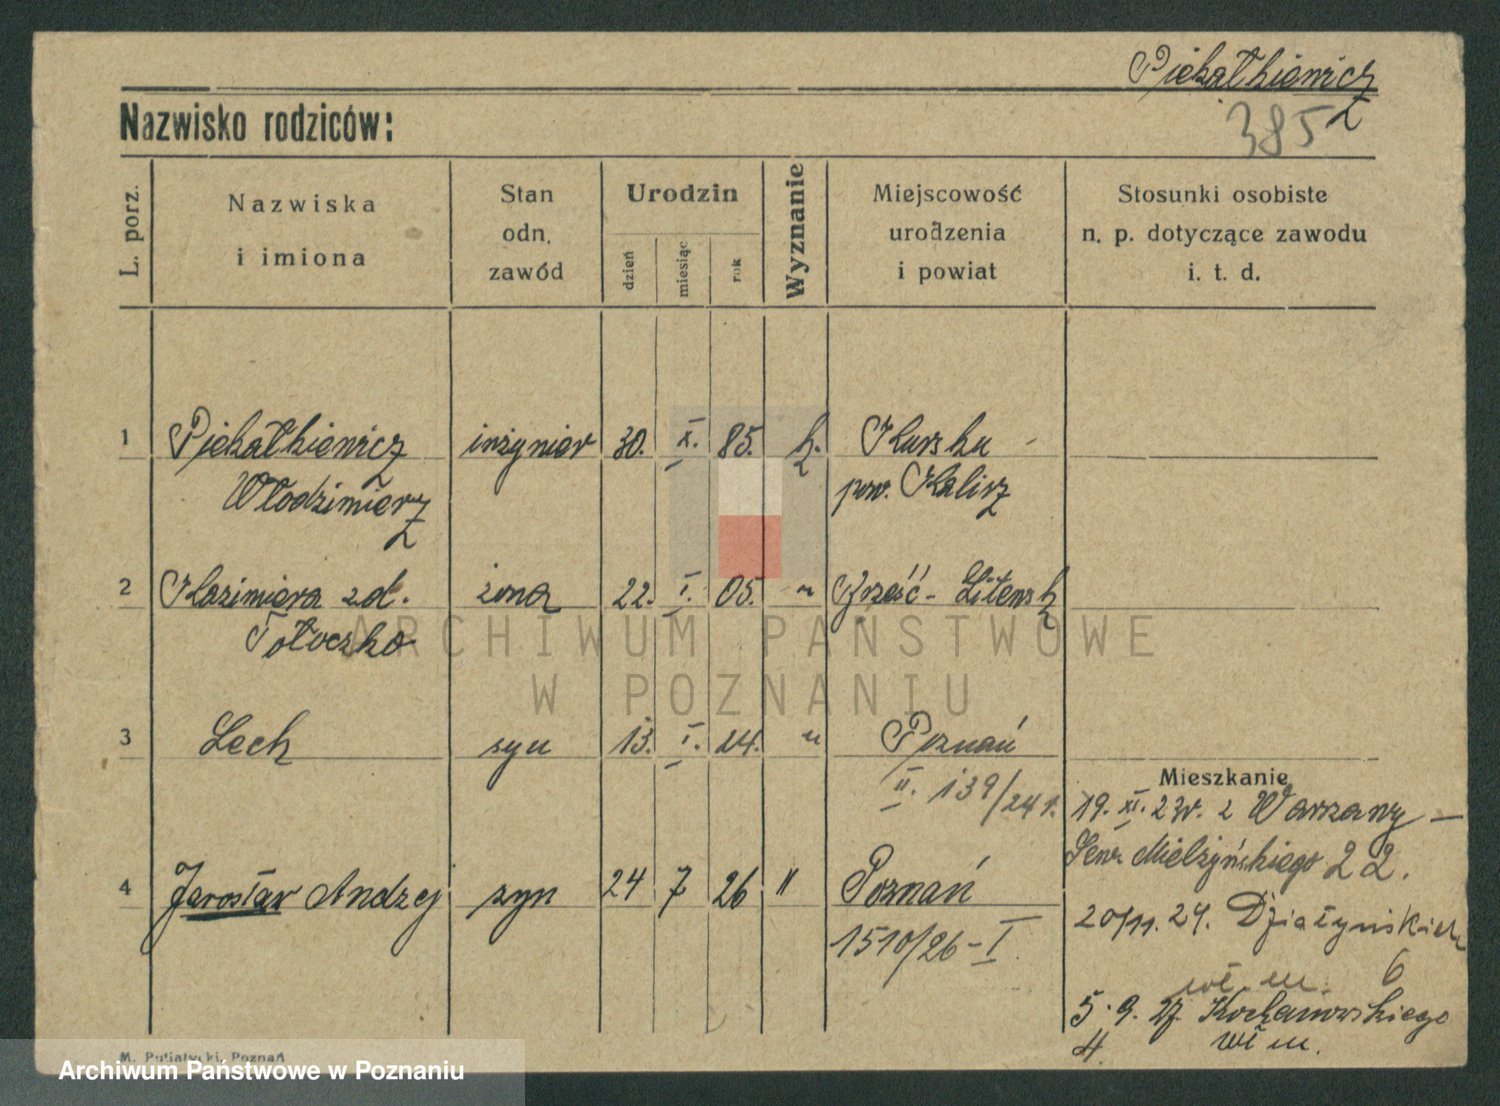 Piekałkiewicz
385
Nazwisko rodziców:
L. porz.
Nazwiska
i imiona
Stan
odn.
zawód
Urodzin
dzień
miesiąc
rok
Wyznanie
Miejscowość
urodzenia
i powiat
Stosunki osobiste
n. p. dotyczące zawodu
i. t. d.
1 Piekałkiewicz inżynier 30. X. 85. k.
Włodzimierz pow. Kalisz
2 Kazimiera zd. żona 22. I. 05. " Brześć - Litewsk
Tołoczko
ARCHIWUM PAŃSTWOWE
W POZNANIU
3 Lech syn 13. I. 24. " Poznań
II. 139/24 r.
Mieszkanie
19. XI. 23r. z Warszawy -
Sew. Mielżyńskiego 22.
4 Jarosław Andrzej syn 24 7 26 " Poznań
1510/26 - I
20/11. 24. Działyńskich
6
wł. m.
5. 9. 27. Kochanowskiego
4. wł m.
M. Putiatycki, Poznań
Archiwum Państwowe w Poznaniu